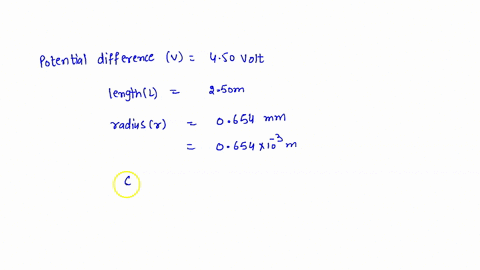 Potential difference (V) = 4.50 Volt
length(L) = 2.50m
radius(r) = 0.654 mm
= 0.654 × 10⁻³ m
C